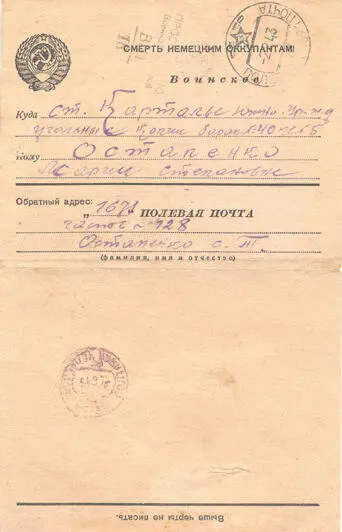 СМЕРТЬ НЕМЕЦКИМ ОККУПАНТАМ!
Воинское
Куда ст. Карталы Южно-Ур. ж.д
угольные Копи барак 40 кв 5
Кому Остапенко
Марии Степановне
Обратный адрес: 1671 ПОЛЕВАЯ ПОЧТА
часть 128
Остапенко С. Т.
(фамилия, имя и отчество)
Выше черты не писать.